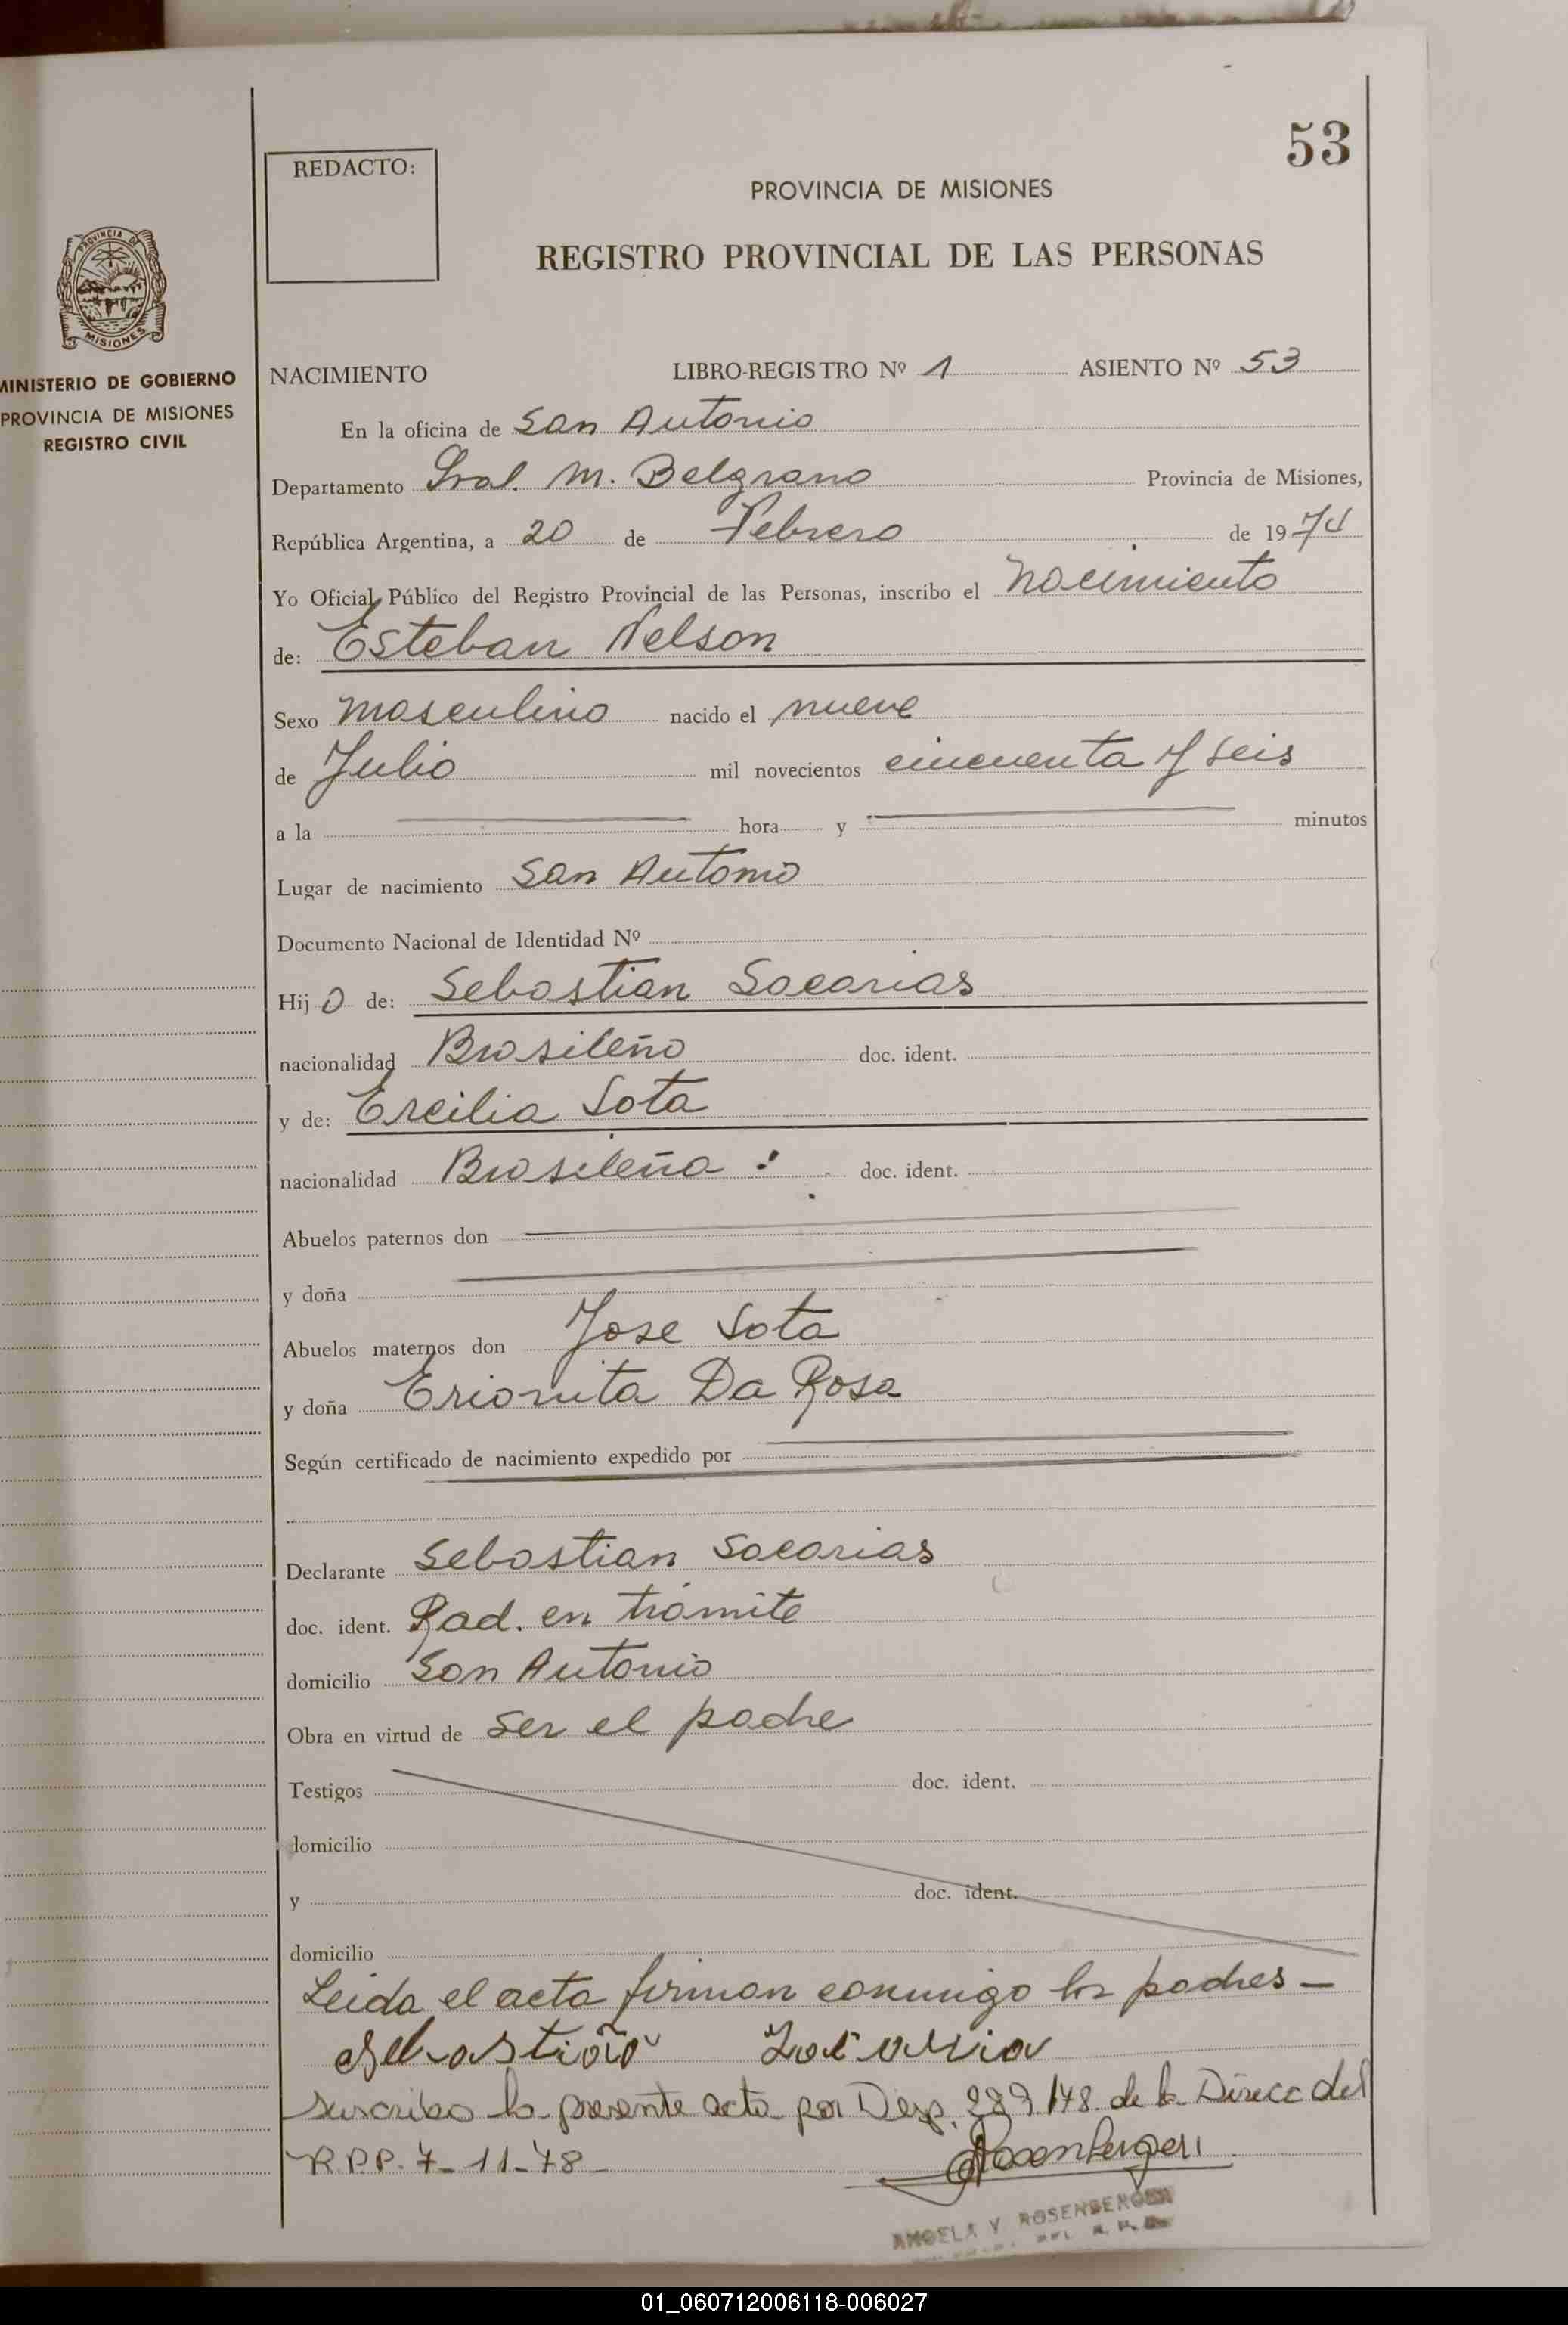 53
REDACTO:
PROVINCIA DE MISIONES
REGISTRO PROVINCIAL DE LAS PERSONAS
PROVINCIA DE
MISIONES
MINISTERIO DE GOBIERNO
PROVINCIA DE MISIONES
REGISTRO CIVIL
NACIMIENTO LIBRO-REGISTRO Nº 1 ASIENTO Nº 53
En la oficina de San Antonio
Departamento Gral. M. Belgrano Provincia de Misiones,
República Argentina, a 20 de Febrero de 1974
Yo Oficial Público del Registro Provincial de las Personas, inscribo el nacimiento
de: Esteban Nelson
Sexo masculino nacido el nueve
de Julio mil novecientos cincuenta y seis
a la hora y minutos
Lugar de nacimiento San Antonio
Documento Nacional de Identidad Nº
Hijo de: Sebastian Sacarias
nacionalidad Brasileño doc. ident.
y de: Ercilia Sota
nacionalidad Brasileña doc. ident.
Abuelos paternos don
y doña
Abuelos maternos don Jose Sota
y doña Da Rosa
Según certificado de nacimiento expedido por
Declarante Sebastian Sacarias
doc. ident. Rad. en trámite
domicilio San Antonio
Obra en virtud de ser el padre
Testigos doc. ident.
domicilio
y doc. ident.
domicilio
Leida el acta firman conmigo los padres -
Sebastião Zacarria
suscribo la presente acta por Disp. 289/78 de la Direcc del
R.P.P. 7-11-78-
Rosenberger
ANGELA Y ROSENBERGER
01_060712006118-006027